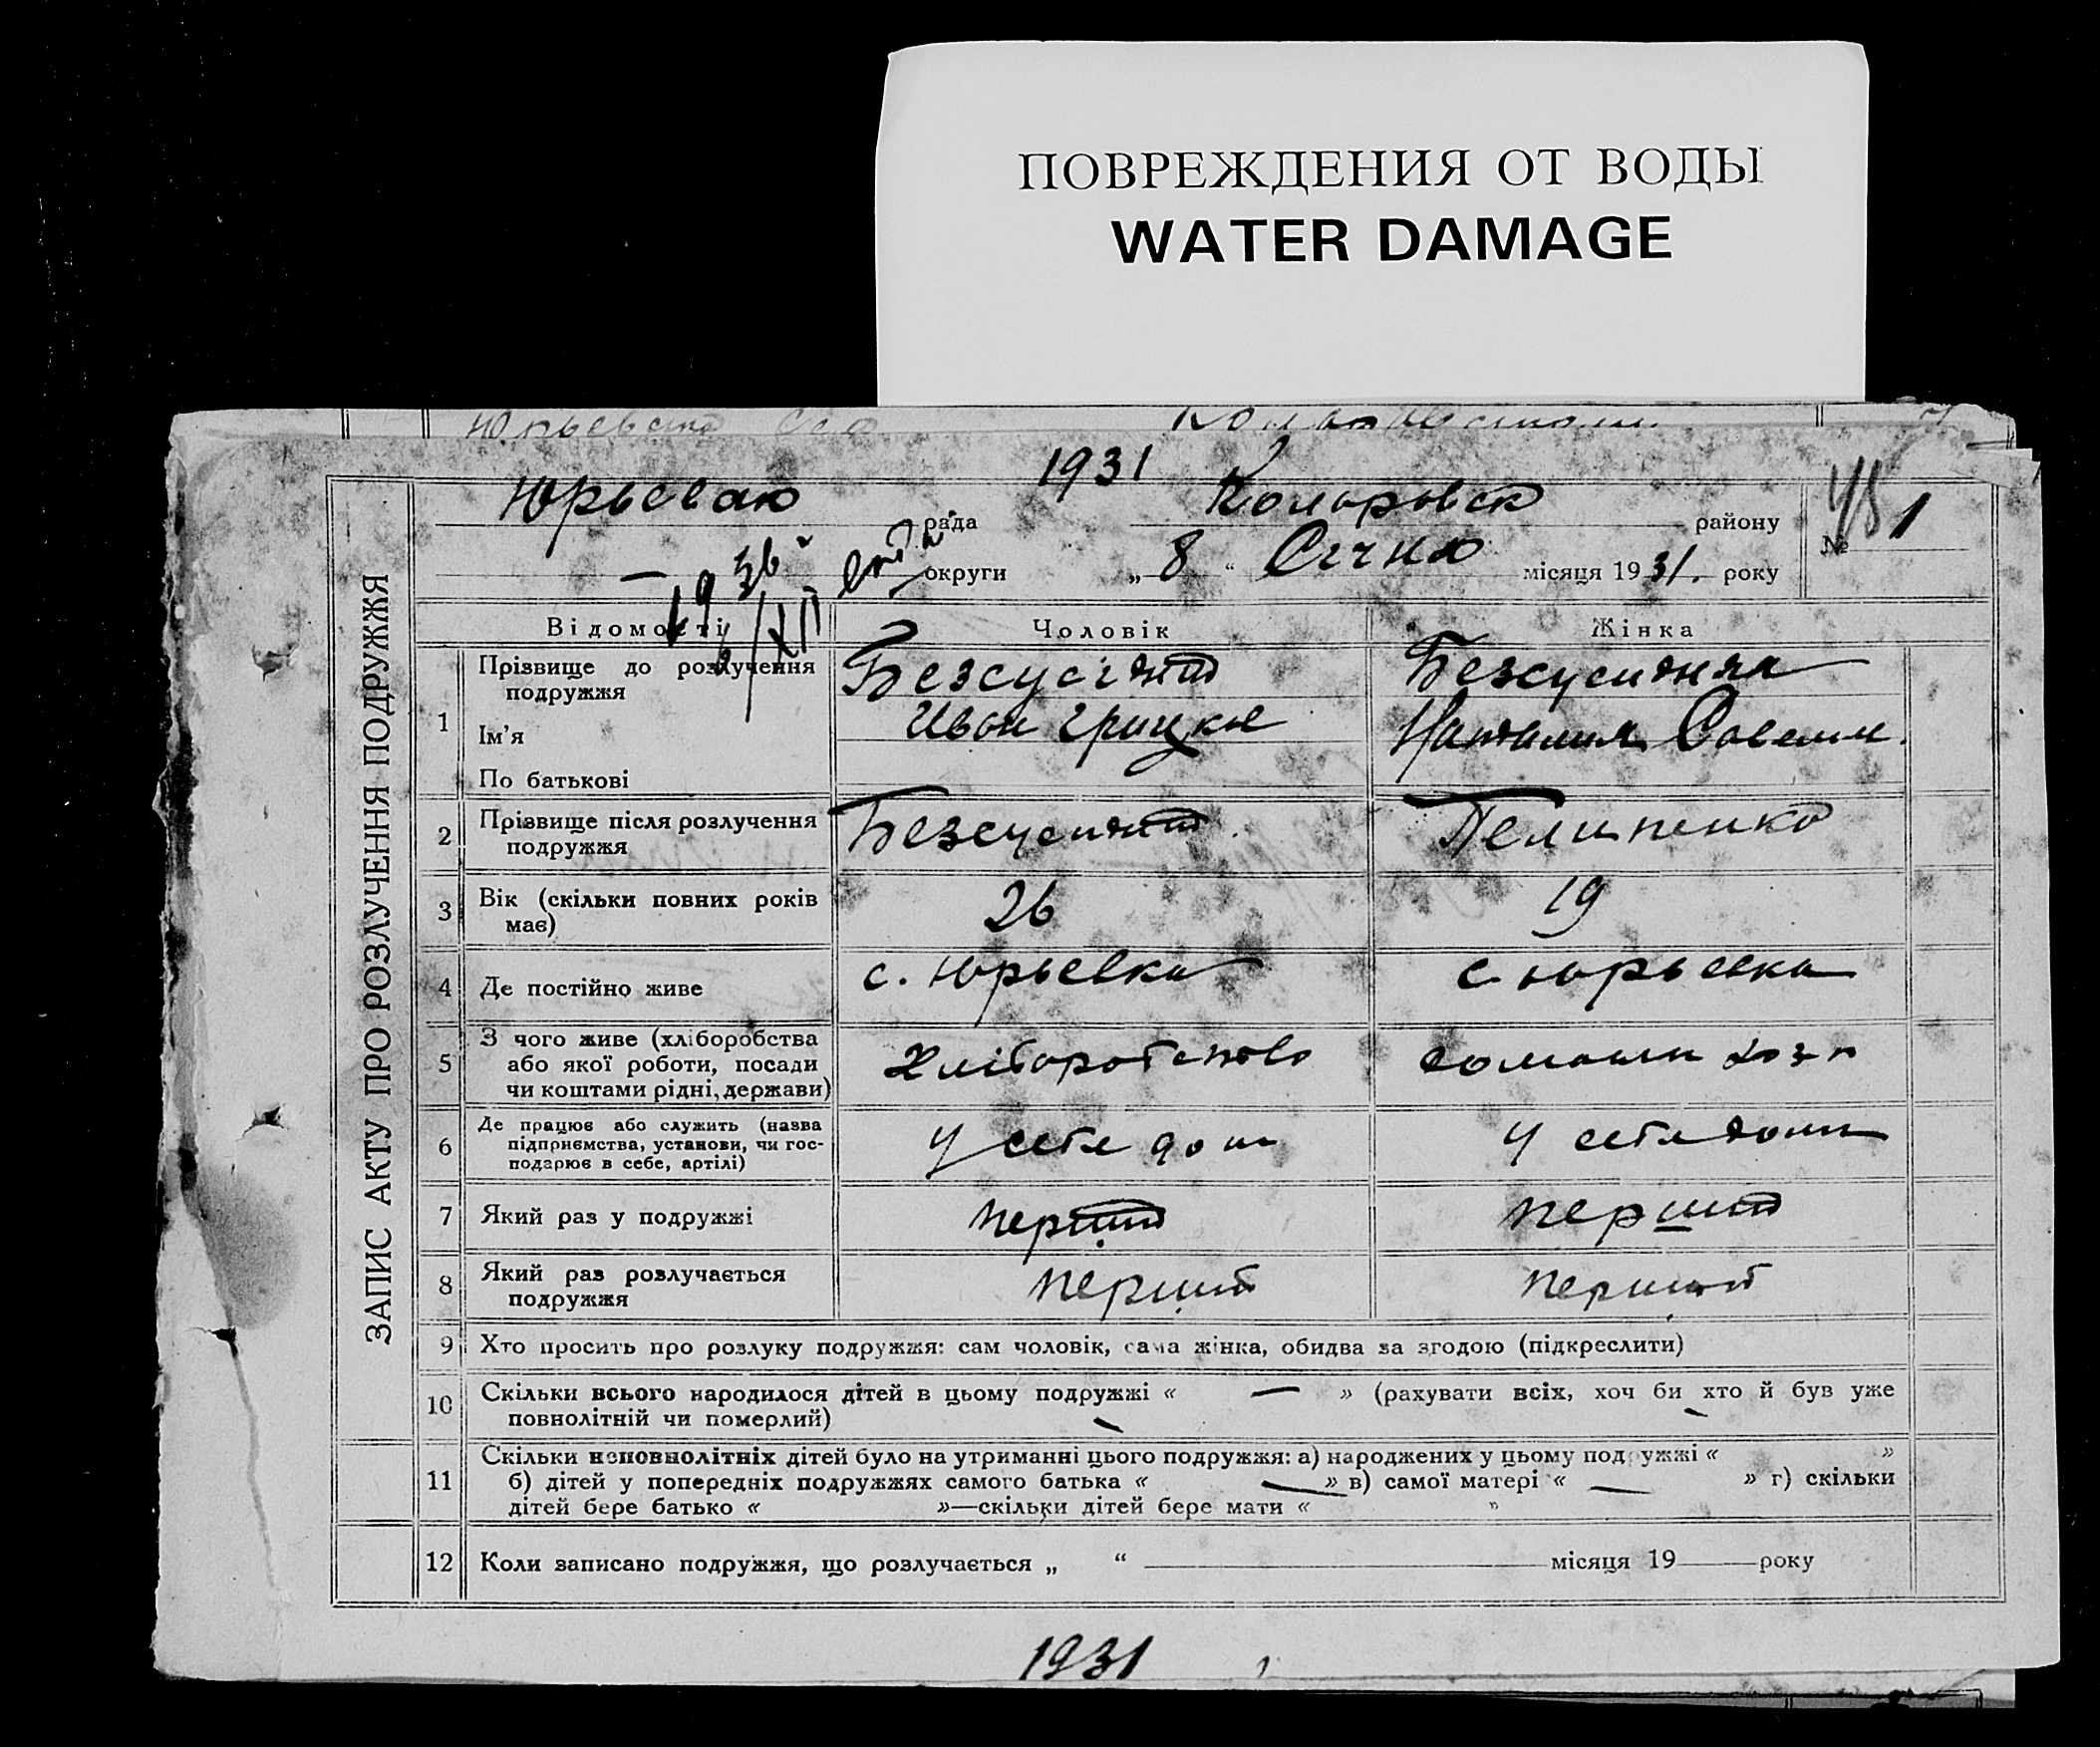 ПОВРЕЖДЕНИЯ ОТ ВОДЫ
WATER DAMAGE
1931
ЗАПИС АКТУ ПРО РОЗЛУЧЕННЯ ПОДРУЖЖЯ
рада района району № 1
— округи „ 8 “ Січня місяця 1931. року
Відомості Чоловік Жінка
1 Прізвище до розлучення подружжя Безсусідній Безсусидняя
Ім'я Иван Грицьк Наталия Савели.
По батькові
2 Прізвище після розлучення подружжя Безсусидній. Пелипенко
3 Вік (скільки повних років має) 26 19
4 Де постійно живе с. Юрьевка с Юрьевка
5 З чого живе (хліборобства або якої роботи, посади чи коштами рідні, держави) Хліборобство
6 Де працює або служить (назва підприємства, установи, чи господарює в себе, артілі) У себе дом У себя доми
7 Який раз у подружжі перший перший
8 Який раз розлучається подружжя перший перший
9 Хто просить про розлуку подружжя: сам чоловік, сама жінка, обидва за згодою (підкреслити)
10 Скільки всього народилося дітей в цьому подружжі « — » (рахувати всіх, хоч би хто й був уже
повнолітній чи померлий)
11 Скільки неповнолітніх дітей було на утриманні цього подружжя: а) народжених у цьому подружжі « »
б) дітей у попередніх подружжях самого батька « — » в) самої матері « — » г) скільки
дітей бере батько « »—скільки дітей бере мати « »
12 Коли записано подружжя, що розлучається „ “ місяця 19 року
1931